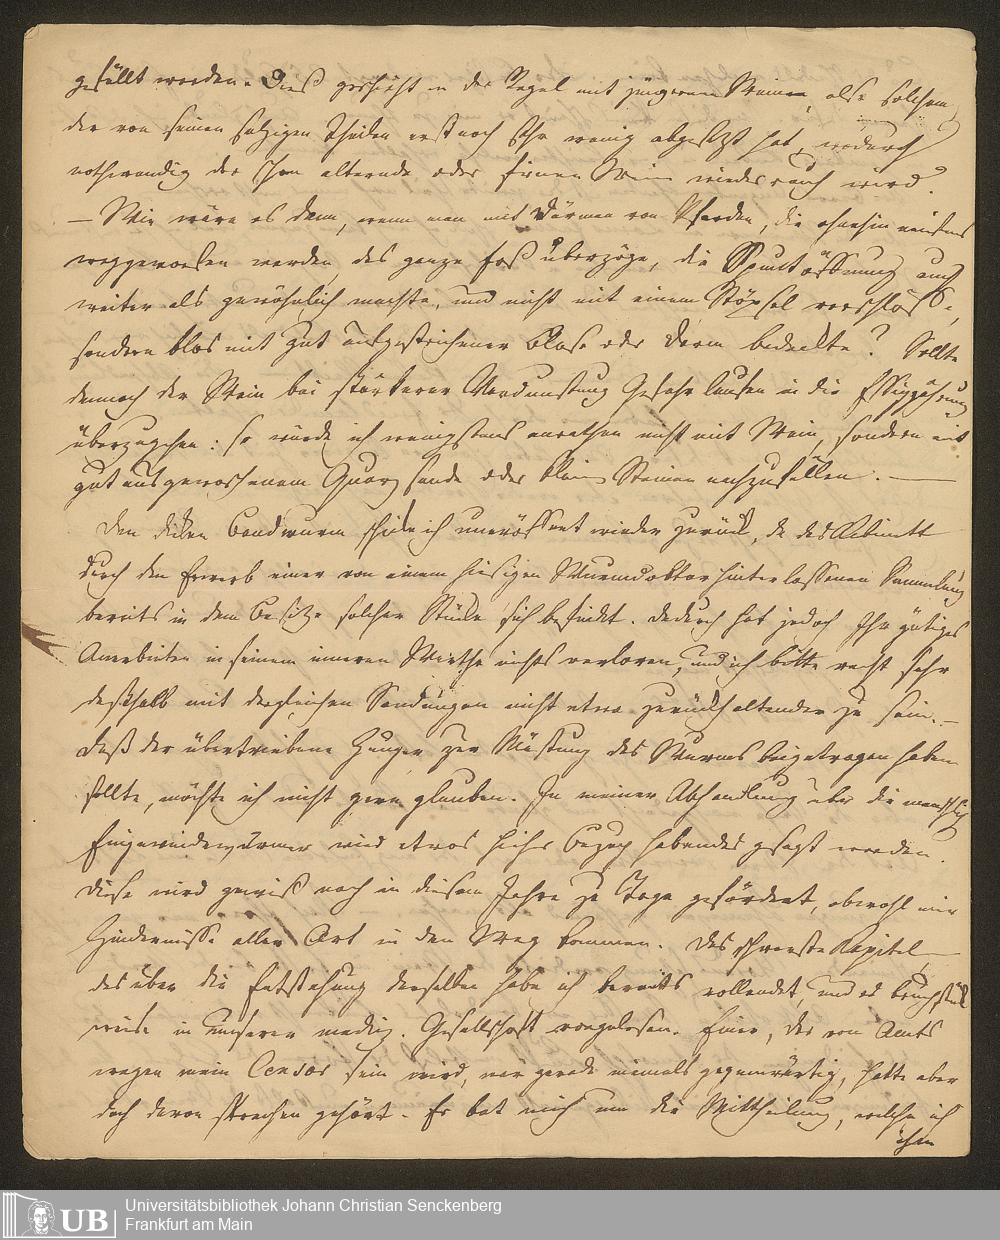 gefüllt werden. Dieß geschieht in der Regel mit jüngerem Weine, also solchem
der von seinen salzigen Theilen erst noch sehr wenig abgesetzt hat, wodurch
nothwendig der schon alternde oder firnen Wein wieder rauh wird.
– Wie wäre es denn, wenn man mit Därmen von Pferden, die ohnehin meistens
weggeworfen werden, das ganze Faß überzöge, die Spuntöffnung auch
weiter als gewöhnlich machte, und nicht mit einem Stöpsel verschlösse,
sondern blos mit gut aufgestrichener Blase oder Darm bedeckte? Sollte
dennoch der Wein bei stärkerer Verdunstung Gefahr laufen in die Essiggährung
überzugehen: so würde ich wenigstens anrathen nicht mit Wein, sondern mit
gut ausgewaschenem Quarzsande oder kleinen Steinen nachzufüllen. –
Den dicken Bandwurm schicke ich uneröffnet wieder zurück, da das Kabinett
durch den Erwerb einer von einem hiesigen Wurmdoktor hinterlassenen Sammlung
bereits in dem Besitze solcher Stücke sich befindet. Dadurch hat jedoch Ihr gütiges
Anerbieten in seinem inneren Werthe nichts verloren, und ich bitte recht sehr
deßhalb mit dergleichen Sendungen nicht etwa zurückhaltender zu sein. –
Daß der übertriebene Hunger zur Mästung des Wurmes beigetragen haben
sollte, möchte ich nicht gern glauben. In meiner Abhandlung über die menschlich
Eingeweidewürmer wird etwas hieher Bezug habendes gesagt werden.
Diese wird gewiß noch in diesem Jahre zu Tage gefördert, obwohl mir
Hindernisse aller Art in den Weg kommen. Das schwerste Kapitel,
das über die Entstehung derselben habe ich bereits vollendet, und es bruchstück
weise in unserer mediz. Gesellschaft vorgelesen. Einer, der von Amts
wegen mein Censor sein wird, war gerade niemals gegenwärtig, hatte aber
doch davon sprechen gehört. Er bat mich um die Mittheilung, welche ich
ihm
Universitätsbibliothek Johann Christian Senckenberg
Frankfurt am Main
UB